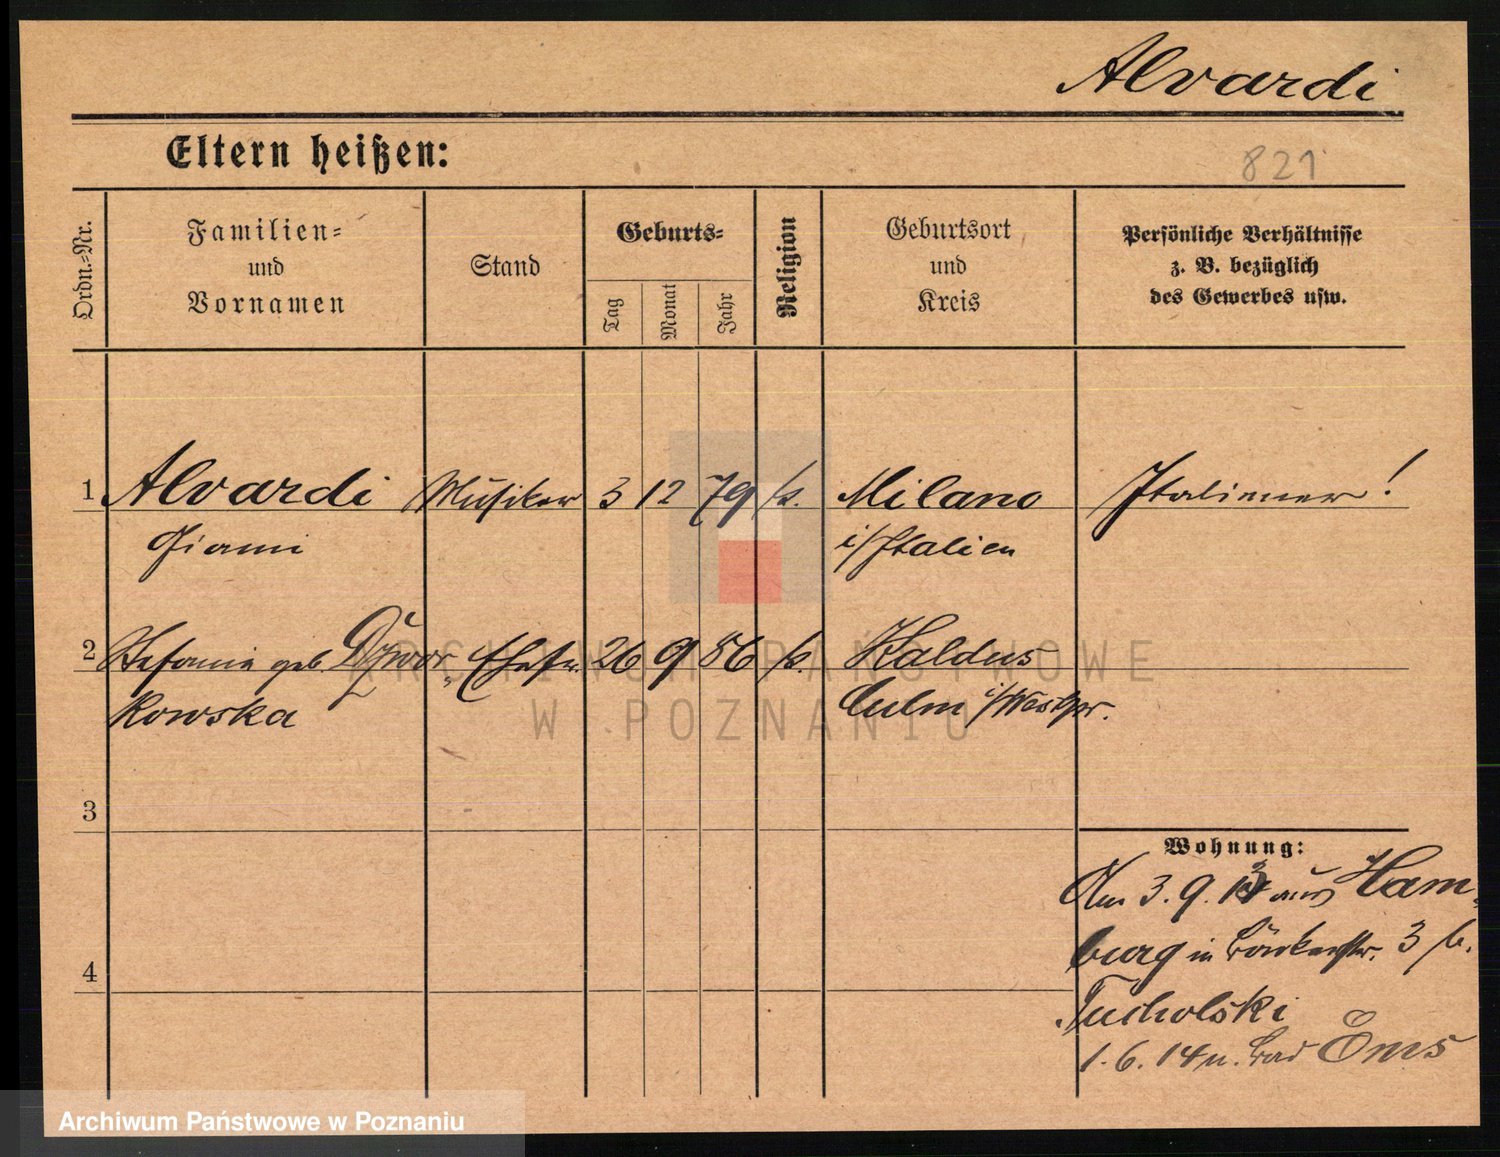 Alvardi
Eltern heißen:
821
Ordn.=Nr.
Familien=
und
Vornamen
Stand
Geburts=
Tag
Monat
Jahr
Religion
Geburtsort
und
Kreis
Persönliche Verhältnisse
z. B. bezüglich
des Gewerbes usw.
1 Alvardi Musiker 3 12 79 k. Milano Italiener!
i/Italien
2 Stefania geb. Ehefr. 26 9 86 k. Kaldus
kowska Culm i/Westpr.
3
Wohnung:
Am 3. 9. 13 aus Ham-
burg in 3 b.
4
Tucholski
1. 6. 14 n. Bad Ems
ARCHIWUM PAŃSTWOWE
W POZNANIU
Archiwum Państwowe w Poznaniu